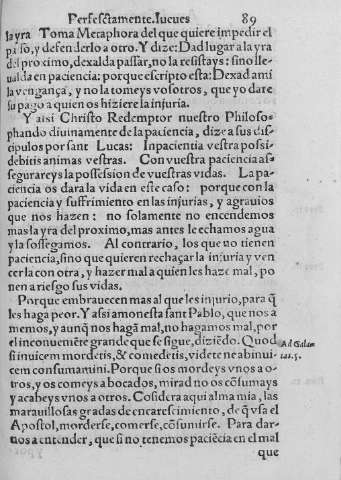 Perfesctamente. Iueues 89
la yra Toma Metaphora del que quiere impedir el
paso, y defenderlo a otro. Y dize: Dad lugar a la yra
del proximo, dexalda passar, no la resistays: sino lle-
ualda en paciencia: porque escripto esta: Dexad a mi
la vengança, y no la tomeys vosotros, que yo dare
su pago a quien os hiziere la injuria.
Y assi Christo Redemptor nuestro Philoso-
phando diuinamente de la paciencia, dize a sus dis-
cipulos por sant Lucas: In pacientia vestra possi-
debitis animas vestras. Con vuestra paciencia as-
segurareys la possession de vuestras vidas. La pa-
ciencia os dara la vida en este caso: porque con la
paciencia y suffrimiento en las injurias, y agrauios
que nos hazen: no solamente no encendemos
mas la yra del proximo, mas antes le echamos agua
y la sossegamos. Al contrario, los que no tienen
paciencia, sino que quieren rechaçar la injuria y ven
cerla con otra, y hazer mal a quien les haze mal, po
nen a riesgo sus vidas.
Porque embrauecen mas al que les injurio, para q̃
les haga peor. Y assi amonesta sant Pablo, que nos a
memos, y aunq̃ nos hagã mal, no hagamos mal, por
el inconueniẽte grande que se sigue, diziẽdo. Quod
si inuicem mordetis, & comedetis, videte ne ab inui
cem consumamini. Porque si os mordeys vnos a o-
tros, y os comeys a bocados, mirad no os cõsumays
y acabeys vnos a otros. Cõsidera aqui alma mia, las
marauillosas gradas de encarescimiento, de q̃ vsa el
Apostol, morderse, comerse, cõsumirse. Para dar-
nos a entender, que si no tenemos paciẽcia en el mal
que
Ad Galat.